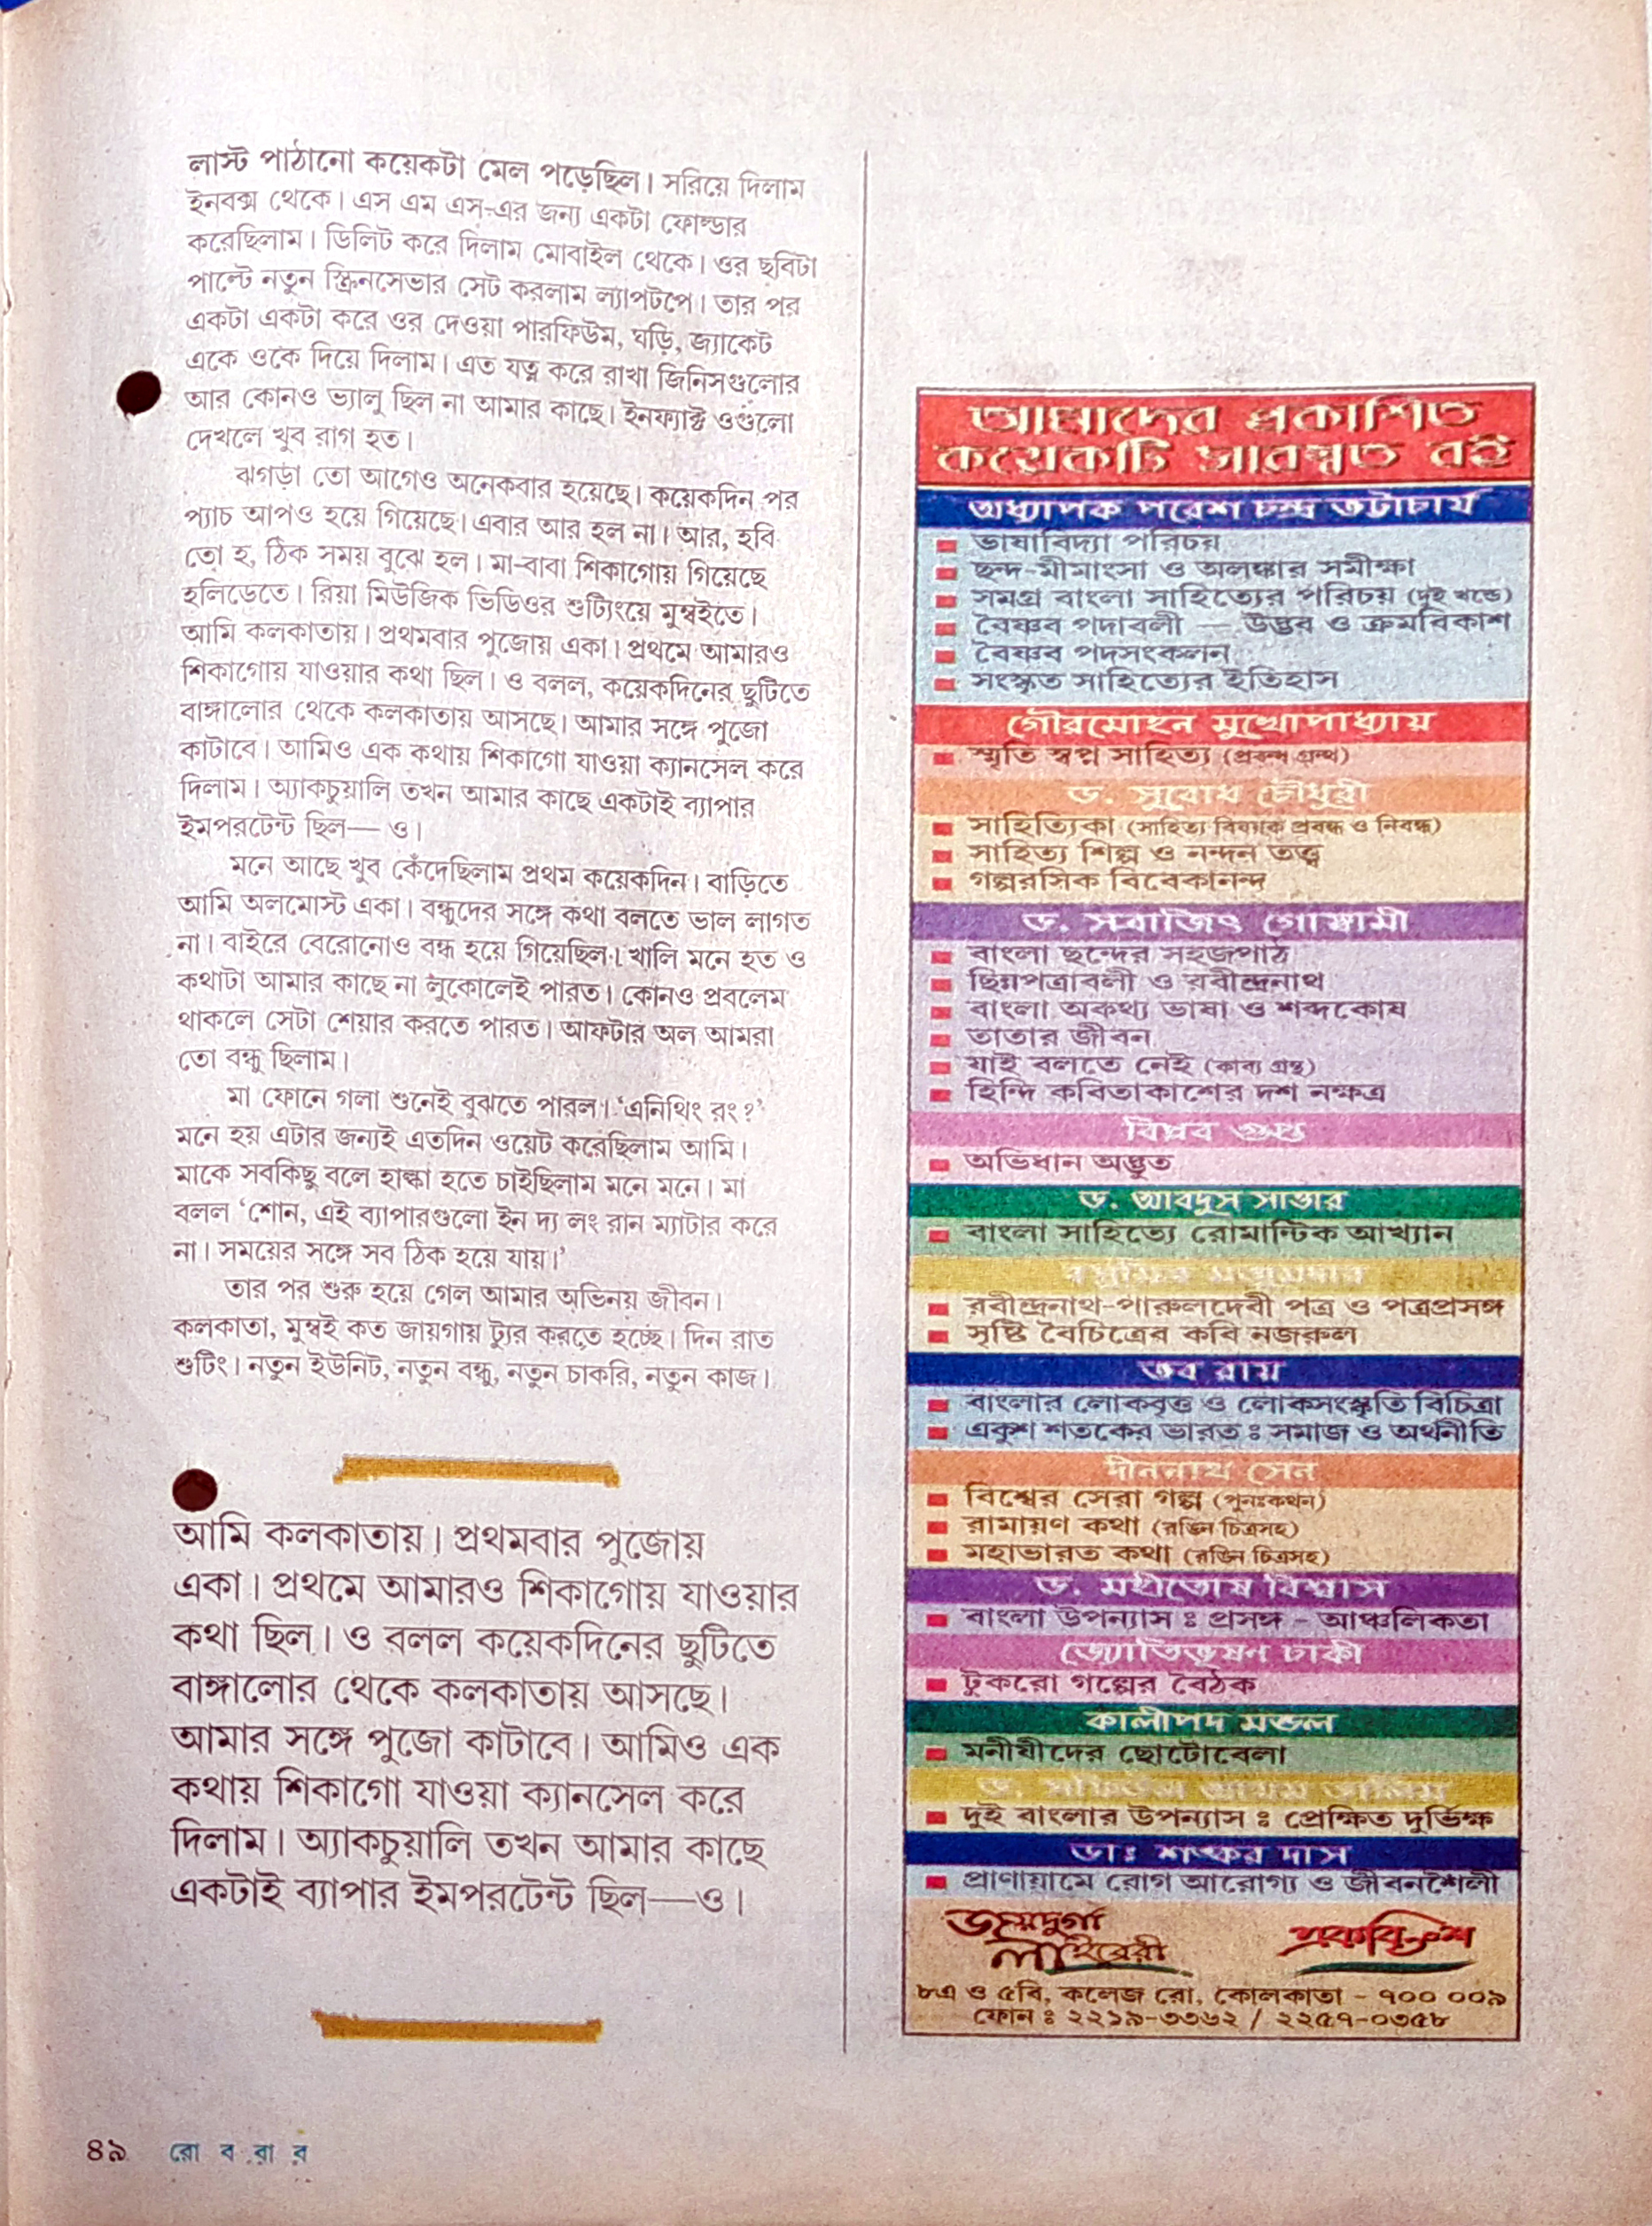 লাস্ট পাঠানো কয়েকটা মেল পড়েছিল। সরিয়ে দিলাম
ইনবক্স থেকে। এস এম এস-এর জন্য একটা ফোল্ডার
করেছিলাম। ডিলিট করে দিলাম মোবাইল থেকে। ওর ছবিটা
পাল্টে নতুন স্ক্রিনসেভার সেট করলাম ল্যাপটপে। তার পর
একটা একটা করে ওর দেওয়া পারফিউম, ঘড়ি, জ্যাকেট
একে ওকে দিয়ে দিলাম। এত যত্ন করে রাখা জিনিসগুলোর
আর কোনও ভ্যালু ছিল না আমার কাছে। ইনফ্যাক্ট ওগুলো
দেখলে খুব রাগ হত।
ঝগড়া তো আগেও অনেকবার হয়েছে। কয়েকদিন পর
প্যাচ আপও হয়ে গিয়েছে। এবার আর হল না। আর, হবি
তো হ, ঠিক সময় বুঝে হল। মা-বাবা শিকাগোয় গিয়েছে
হলিডেতে। রিয়া মিউজিক ভিডিওর শুটিংয়ে মুম্বইতে।
আমি কলকাতায়। প্রথমবার পুজোয় একা। প্রথমে আমারও
শিকাগোয় যাওয়ার কথা ছিল। ও বলল, কয়েকদিনের ছুটিতে
বাঙ্গালোর থেকে কলকাতায় আসছে। আমার সঙ্গে পুজো
কাটাবে। আমিও এক কথায় শিকাগো যাওয়া ক্যানসেল করে
দিলাম। অ্যাকচুয়ালি তখন আমার কাছে একটাই ব্যাপার
ইমপরটেন্ট ছিল— ও।
মনে আছে খুব কেঁদেছিলাম প্রথম কয়েকদিন। বাড়িতে
আমি অলমোস্ট একা। বন্ধুদের সঙ্গে কথা বলতে ভাল লাগত
না। বাইরে বেরোনোও বন্ধ হয়ে গিয়েছিল। খালি মনে হত ও
কথাটা আমার কাছে না লুকোলেই পারত। কোনও প্রবলেম
থাকলে সেটা শেয়ার করতে পারত। আফটার অল আমরা
তো বন্ধু ছিলাম।
মা ফোনে গলা শুনেই বুঝতে পারল। ‘এনিথিং রং?’
মনে হয় এটার জন্যই এতদিন ওয়েট করেছিলাম আমি।
মাকে সবকিছু বলে হাল্কা হতে চাইছিলাম মনে মনে। মা
বলল ‘শোন, এই ব্যাপারগুলো ইন দ্য লং রান ম্যাটার করে
না। সময়ের সঙ্গে সব ঠিক হয়ে যায়।’
তার পর শুরু হয়ে গেল আমার অভিনয় জীবন।
কলকাতা, মুম্বই কত জায়গায় ট্যুর করতে হচ্ছে। দিন রাত
শুটিং। নতুন ইউনিট, নতুন বন্ধু, নতুন চাকরি, নতুন কাজ।
আমি কলকাতায়। প্রথমবার পুজোয়
একা। প্রথমে আমারও শিকাগোয় যাওয়ার
কথা ছিল। ও বলল কয়েকদিনের ছুটিতে
বাঙ্গালোর থেকে কলকাতায় আসছে।
আমার সঙ্গে পুজো কাটাবে। আমিও এক
কথায় শিকাগো যাওয়া ক্যানসেল করে
দিলাম। অ্যাকচুয়ালি তখন আমার কাছে
একটাই ব্যাপার ইমপরটেন্ট ছিল—ও।
৪৯ রোববার
আমাদের প্রকাশিত
কয়েকটি সারস্বত বই
অধ্যাপক পরেশ চন্দ্র ভট্টাচার্য
ভাষাবিদ্যা পরিচয়
ছন্দ-মীমাংসা ও অলঙ্কার সমীক্ষা
সমগ্র বাংলা সাহিত্যের পরিচয় (দুই খন্ডে)
বৈষ্ণব পদাবলী — উদ্ভব ও ক্রমবিকাশ
বৈষ্ণব পদসংকলন
সংস্কৃত সাহিত্যের ইতিহাস
গৌরমোহন মুখোপাধ্যায়
স্মৃতি স্বপ্ন সাহিত্য (প্রবন্ধ গ্রন্থ)
ড. সুবোধ চৌধুরী
সাহিত্যিকা (সাহিত্য বিষয়ক প্রবন্ধ ও নিবন্ধ)
সাহিত্য শিল্প ও নন্দন তত্ত্ব
গল্পরসিক বিবেকানন্দ
ড. সবাজিৎ গোস্বামী
বাংলা ছন্দের সহজপাঠ
ছিন্নপত্রাবলী ও রবীন্দ্রনাথ
বাংলা অকথ্য ভাষা ও শব্দকোষ
তাতার জীবন
যাই বলতে নেই (কাব্য গ্রন্থ)
হিন্দি কবিতাকাশের দশ নক্ষত্র
বিপ্লব গুপ্ত
অভিধান অদ্ভুত
ড. আবদুস সাত্তার
বাংলা সাহিত্যে রোমান্টিক আখ্যান
মজুমদার
রবীন্দ্রনাথ-পারুলদেবী পত্র ও পত্রপ্রসঙ্গ
সৃষ্টি বৈচিত্রের কবি নজরুল
ভব রায়
বাংলার লোকবৃত্ত ও লোকসংস্কৃতি বিচিত্রা
একুশ শতকের ভারত ঃ সমাজ ও অর্থনীতি
দীননাথ সেন
বিশ্বের সেরা গল্প (পুনঃকথন)
রামায়ণ কথা (রঙিন চিত্রসহ)
মহাভারত কথা (রঙিন চিত্রসহ)
ড. মহীতোষ বিশ্বাস
বাংলা উপন্যাস ঃ প্রসঙ্গ - আঞ্চলিকতা
জ্যোতিভূষণ চাকী
টুকরো গল্পের বৈঠক
কালীপদ মন্ডল
মনীষীদের ছোটোবেলা
ড.
দুই বাংলার উপন্যাস ঃ প্রেক্ষিত দুর্ভিক্ষ
ডাঃ শঙ্কর দাস
প্রাণায়ামে রোগ আরোগ্য ও জীবনশৈলী
জয়দুর্গা
লাইব্রেরী
একবিংশ
৮এ ও ৫বি, কলেজ রো, কোলকাতা - ৭০০ ০০৯
ফোন ঃ ২২১৯-৩৩৬২ / ২২৫৭-০৩৫৮